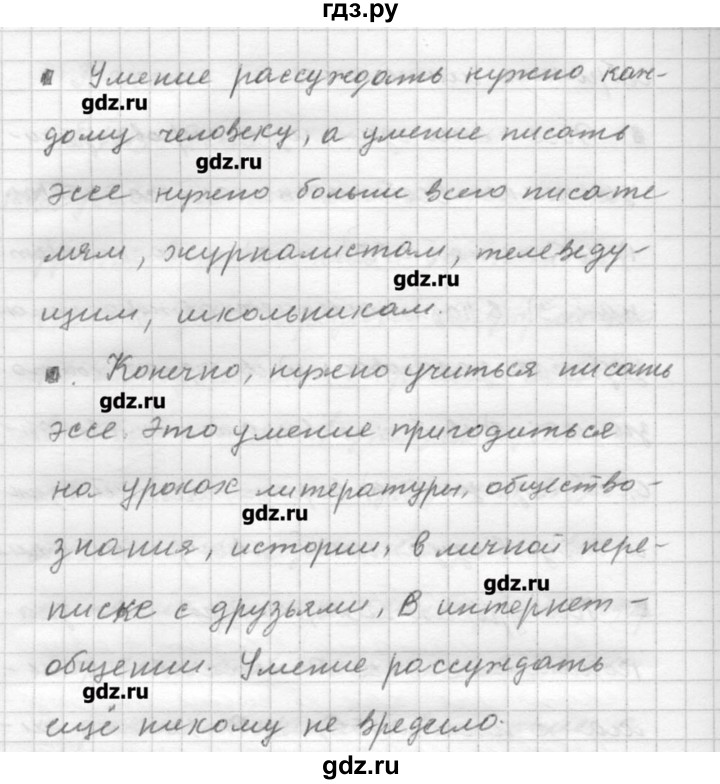 гдз.ру
Умение рассуждать нужно каж-
gdz.ru
дому человеку, а умение писать
gdz.ru
эссе нужно больше всего писате
лям, журналистам, телеведу-
gdz.ru
щим, школьникам.
Конечно, нужно учиться писать
gdz.ru
эссе. Это умение пригодиться
на уроках литературы, общество-
gdz.ru
знания, истории, в личной пере-
gdz.ru
писке с друзьями, в интернет-
общении. Умение рассуждать
gdz.ru
ещё никому не вредило.
gdz.ru